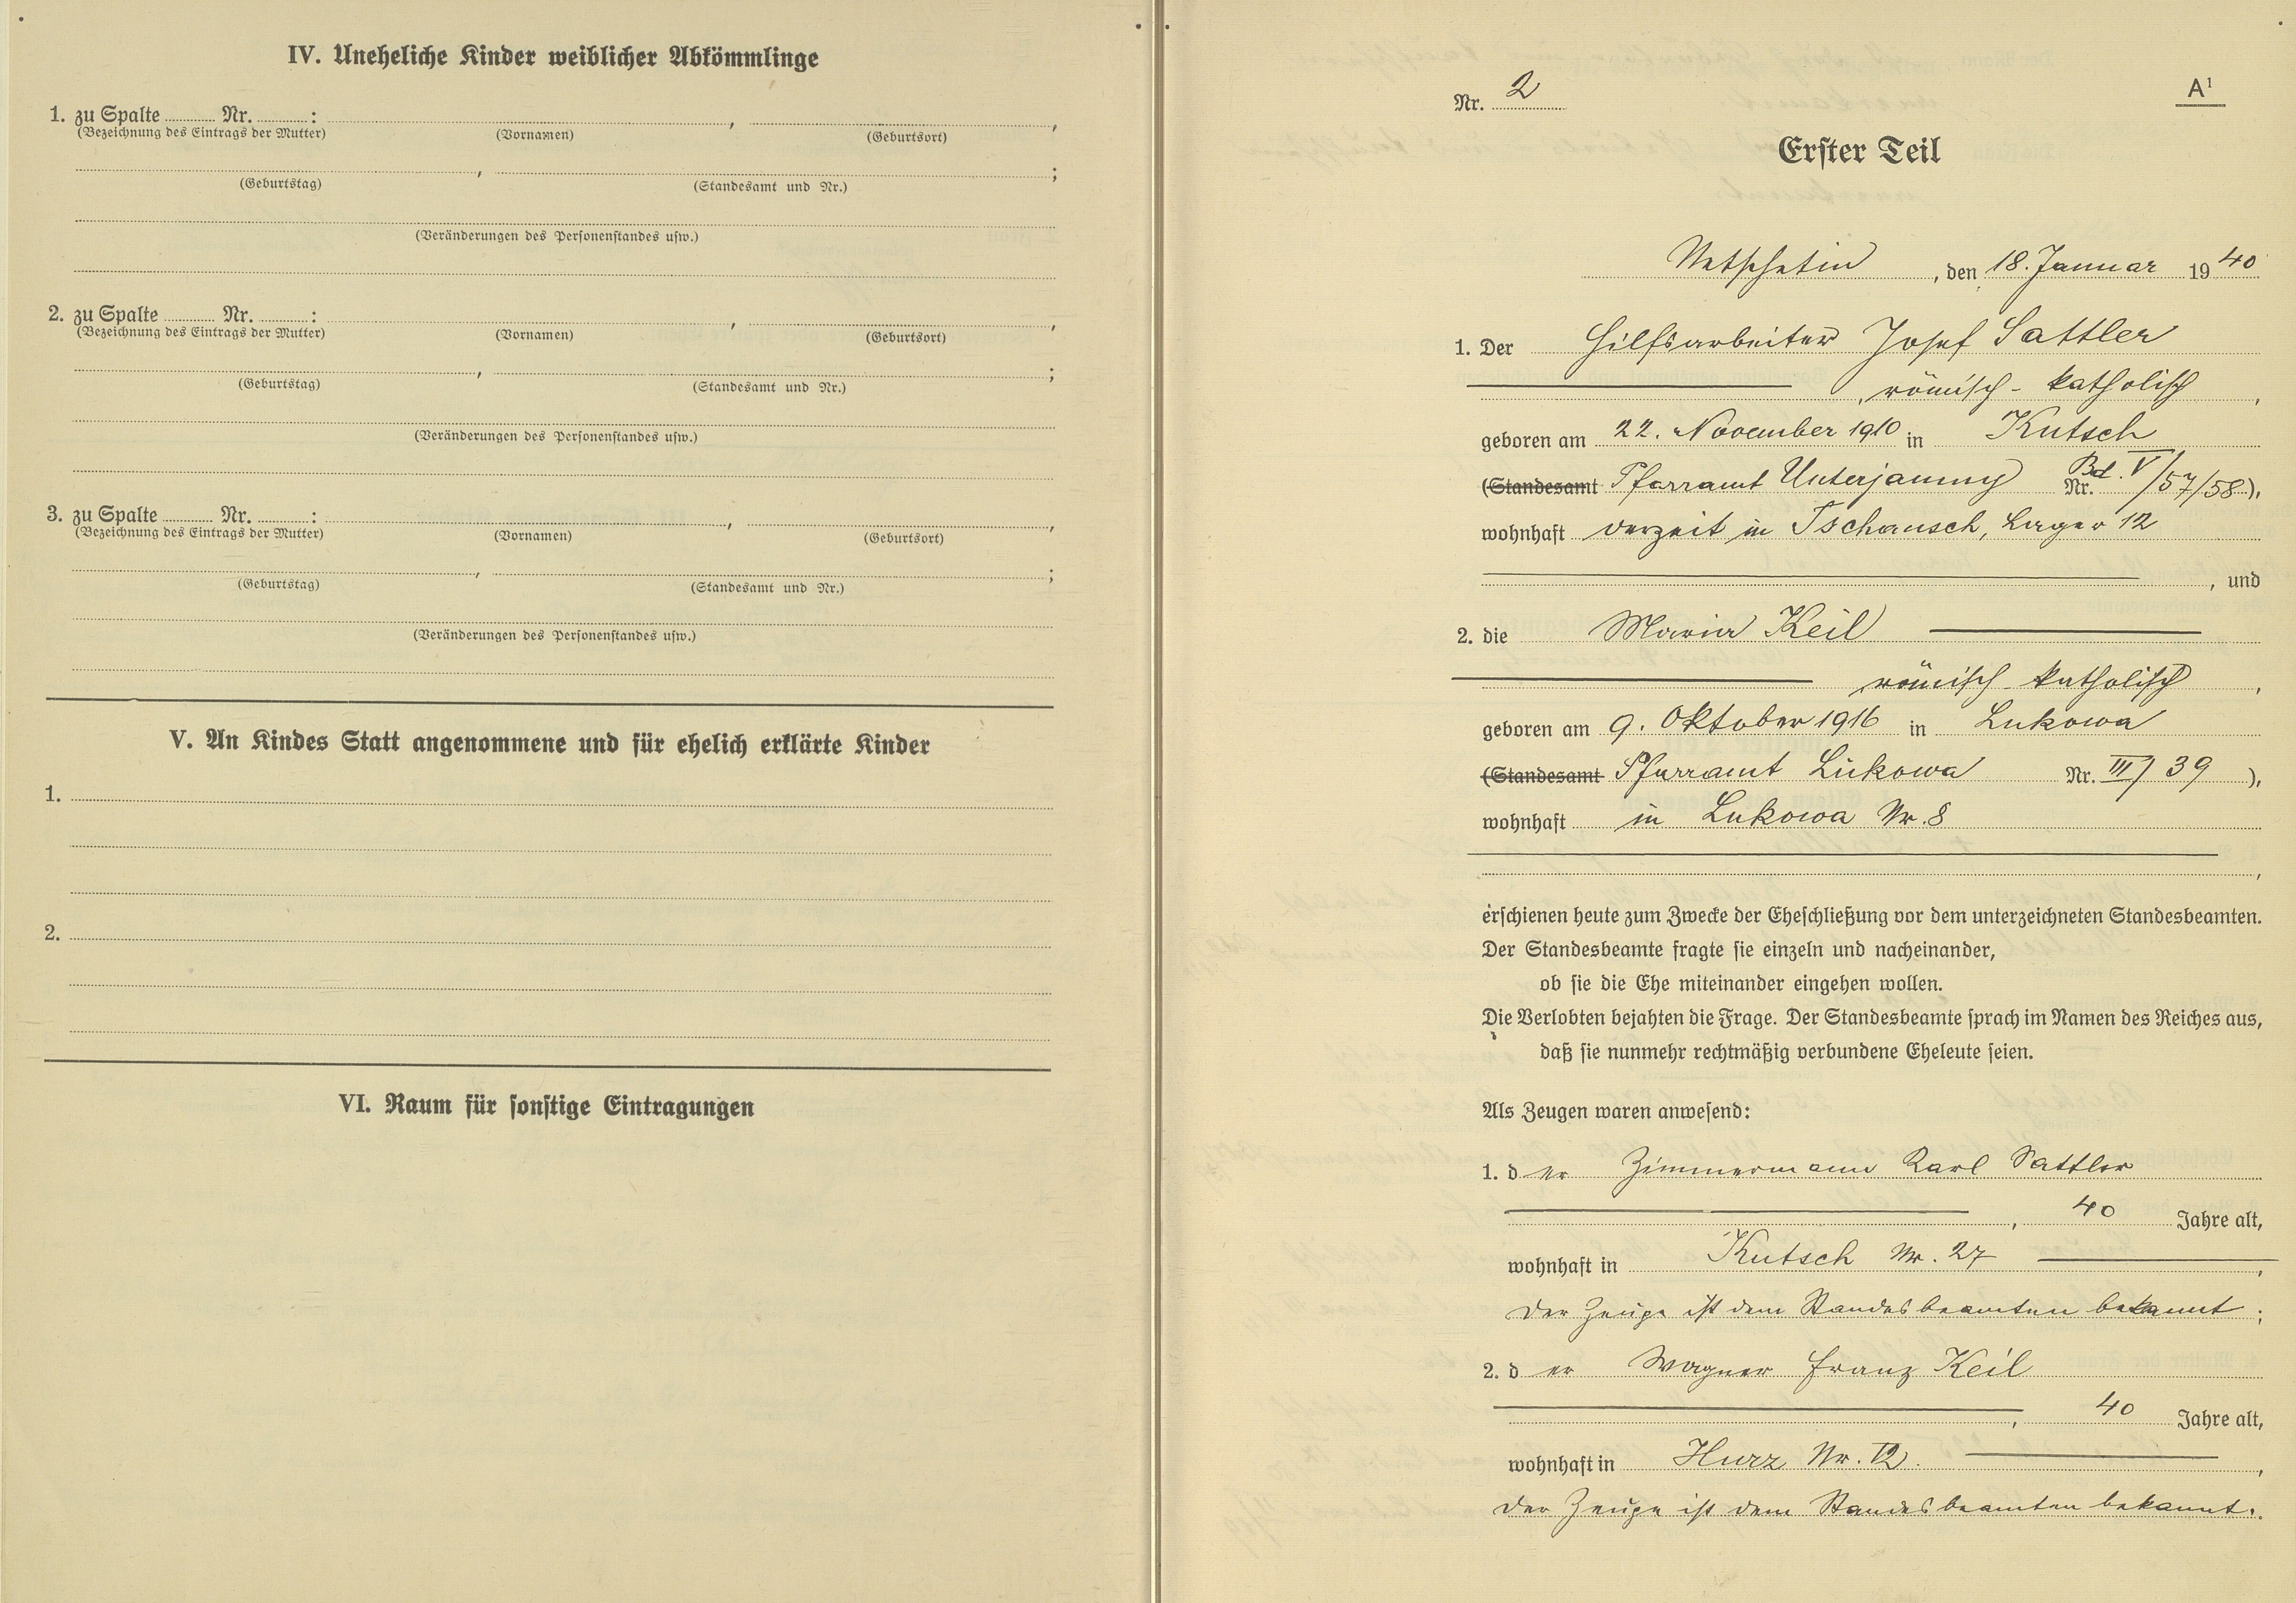 IV. Uneheliche Kinder weiblicher Abkömmlinge
1. zu Spalte ........ Nr. ........ : , ,
(Bezeichnung des Eintrags der Mutter) (Vornamen) (Geburtsort)
, ;
(Geburtstag) (Standesamt und Nr.)
(Veränderungen des Personenstandes usw.)
2. zu Spalte ........ Nr. ........ : , ,
(Bezeichnung des Eintrags der Mutter) (Vornamen) (Geburtsort)
, ;
(Geburtstag) (Standesamt und Nr.)
(Veränderungen des Personenstandes usw.)
3. zu Spalte ........ Nr. ........ : , ,
(Bezeichnung des Eintrags der Mutter) (Vornamen) (Geburtsort)
, ;
(Geburtstag) (Standesamt und Nr.)
(Veränderungen des Personenstandes usw.)
V. An Kindes Statt angenommene und für ehelich erklärte Kinder
1.
2.
VI. Raum für sonstige Eintragungen
Nr. 2
A¹
Erster Teil
Netschetin, den 18. Januar 1940
1. Der Hilfsarbeiter Josef Sattler
, römisch-katholisch,
geboren am 22. November 1910 in Kutsch
(Standesamt Pfarramt Unterjamny Bd. Nr. V/57/58),
wohnhaft derzeit in Tschausch, Lager 12
, und
2. die Maria Keil
römisch-katholisch,
geboren am 9. Oktober 1916 in Lukowa
(Standesamt Pfarramt Lukowa Nr. III/39),
wohnhaft in Lukowa Nr. 8
,
erschienen heute zum Zwecke der Eheschließung vor dem unterzeichneten Standesbeamten.
Der Standesbeamte fragte sie einzeln und nacheinander,
ob sie die Ehe miteinander eingehen wollen.
Die Verlobten bejahten die Frage. Der Standesbeamte sprach im Namen des Reiches aus,
daß sie nunmehr rechtmäßig verbundene Eheleute seien.
Als Zeugen waren anwesend:
1. der Zimmermann Karl Sattler
, 40 Jahre alt,
wohnhaft in Kutsch Nr. 27,
Der Zeuge ist dem Standesbeamten bekannt;
2. der Wagner Franz Keil
, 40 Jahre alt,
wohnhaft in Hurz Nr. 12.,
Der Zeuge ist dem Standesbeamten bekannt.